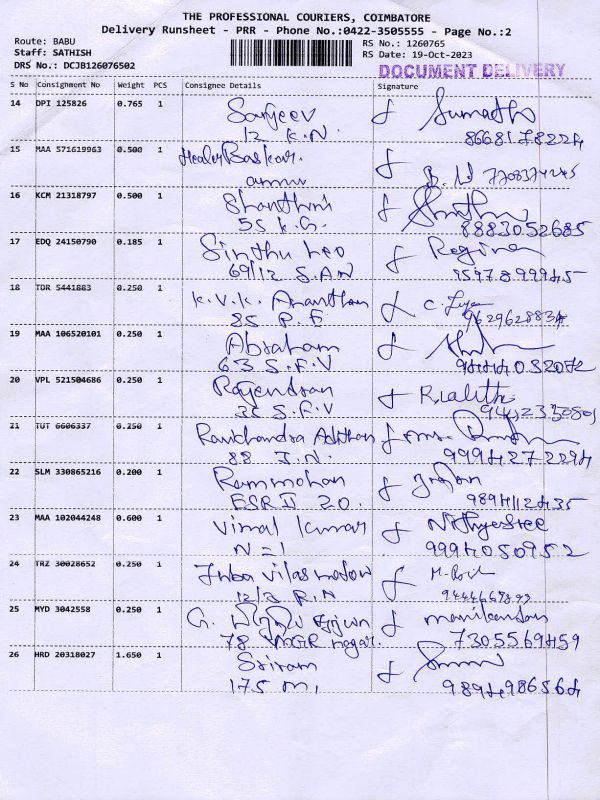 THE PROFESSIONAL COURIERS, COIMBATORE
Delivery Runsheet - PRR - Phone No.:0422-3505555 - Page No.:2
Route: BABU
Staff: SATHISH
DRS No.: DCJB126076502
RS No.: 1260765
RS Date: 19-Oct-2023
DOCUMENT DELIVERY
S No Consignment No Weight PCS Consignee Details Signature
14 DPI 125826 0.765 1 Sanjeev
12 K.N.
15 MAA 571619963 0.500 1 Baskar
16 KCM 21318797 0.500 1 Shanthini
55 K.G.
8883052685
17 EDQ 24150790 0.185 1 Sinthu Leo Regina
69/12 S.A.N
18 TDR 5441883 0.250 1 K.V.K. Ananthan
85 P.F
9629628834
19 MAA 106520101 0.250 1 Abraham
63 S.F.V
9444032072
20 VPL 521504686 0.250 1 Rajendran R.Lalith
S.F.V
21 TUT 6606337 0.250 1 Ravichandra Adithan
88 J.N.
9994272294
22 SLM 330865216 0.200 1 Rammohan
ESR II 20.
9894112435
23 MAA 102044248 0.600 1 Vimal Kumar Nithyesree
N=1
9994050952
24 TRZ 30028652 0.250 1
12/3 R.N
25 MYD 3042558 0.250 1 G. manikandan
78 MGR nagar.
7305569459
26 HRD 20318027 1.650 1 Sriram
175 M,
9894986564